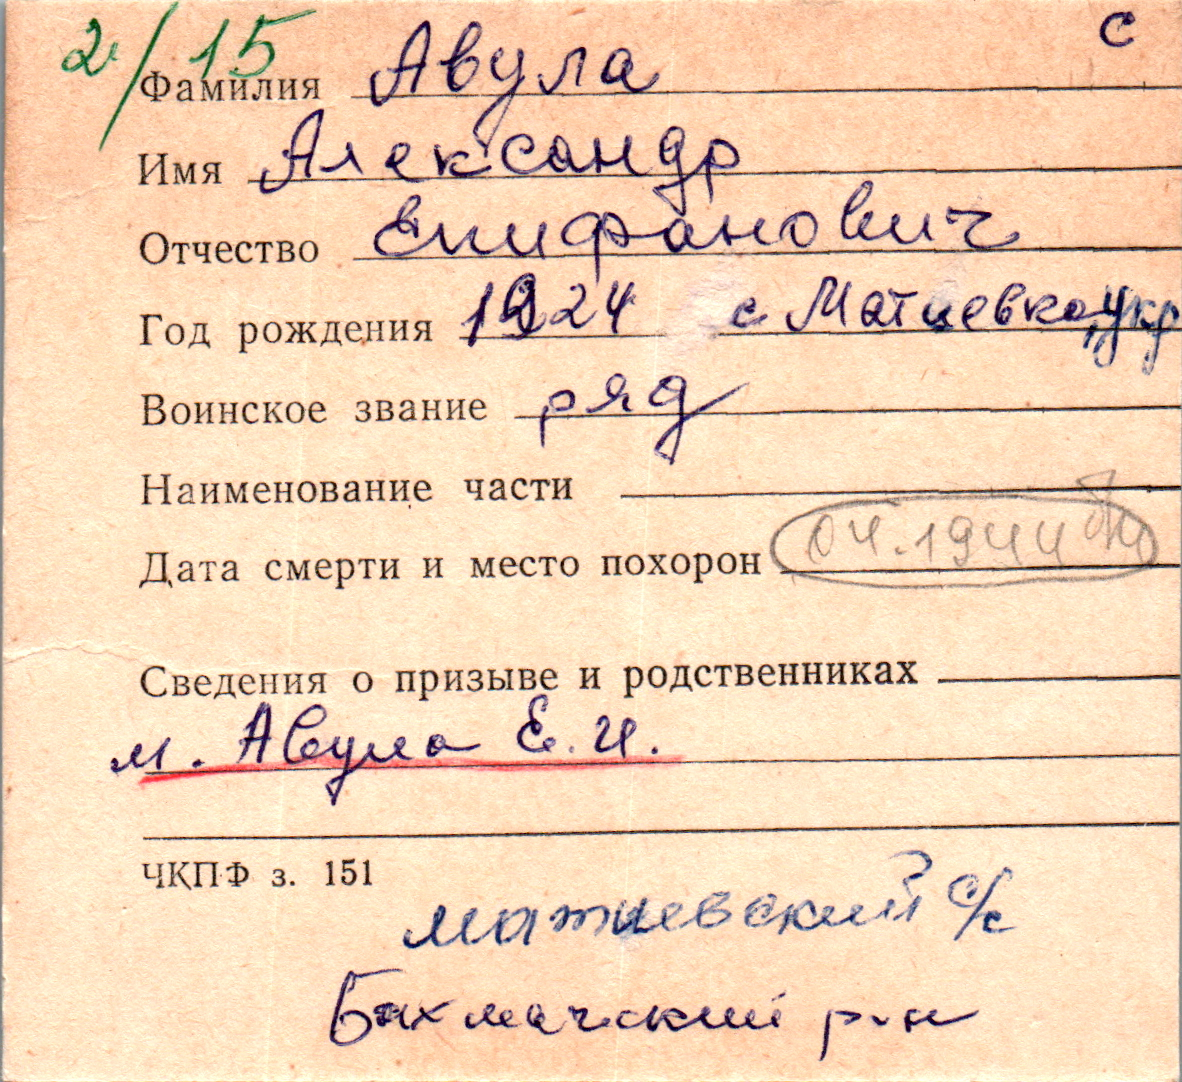 2/15 с
Фамилия Авула
Имя Александр
Отчество Епифанович
Год рождения 1924 с Матцевка, укр
Воинское звание ряд
Наименование части
Дата смерти и место похорон 04.1944
Сведения о призыве и родственниках
м. Авула Е.И.
ЧКПФ з. 151
Матиевский с/с
Бахмачский р-н